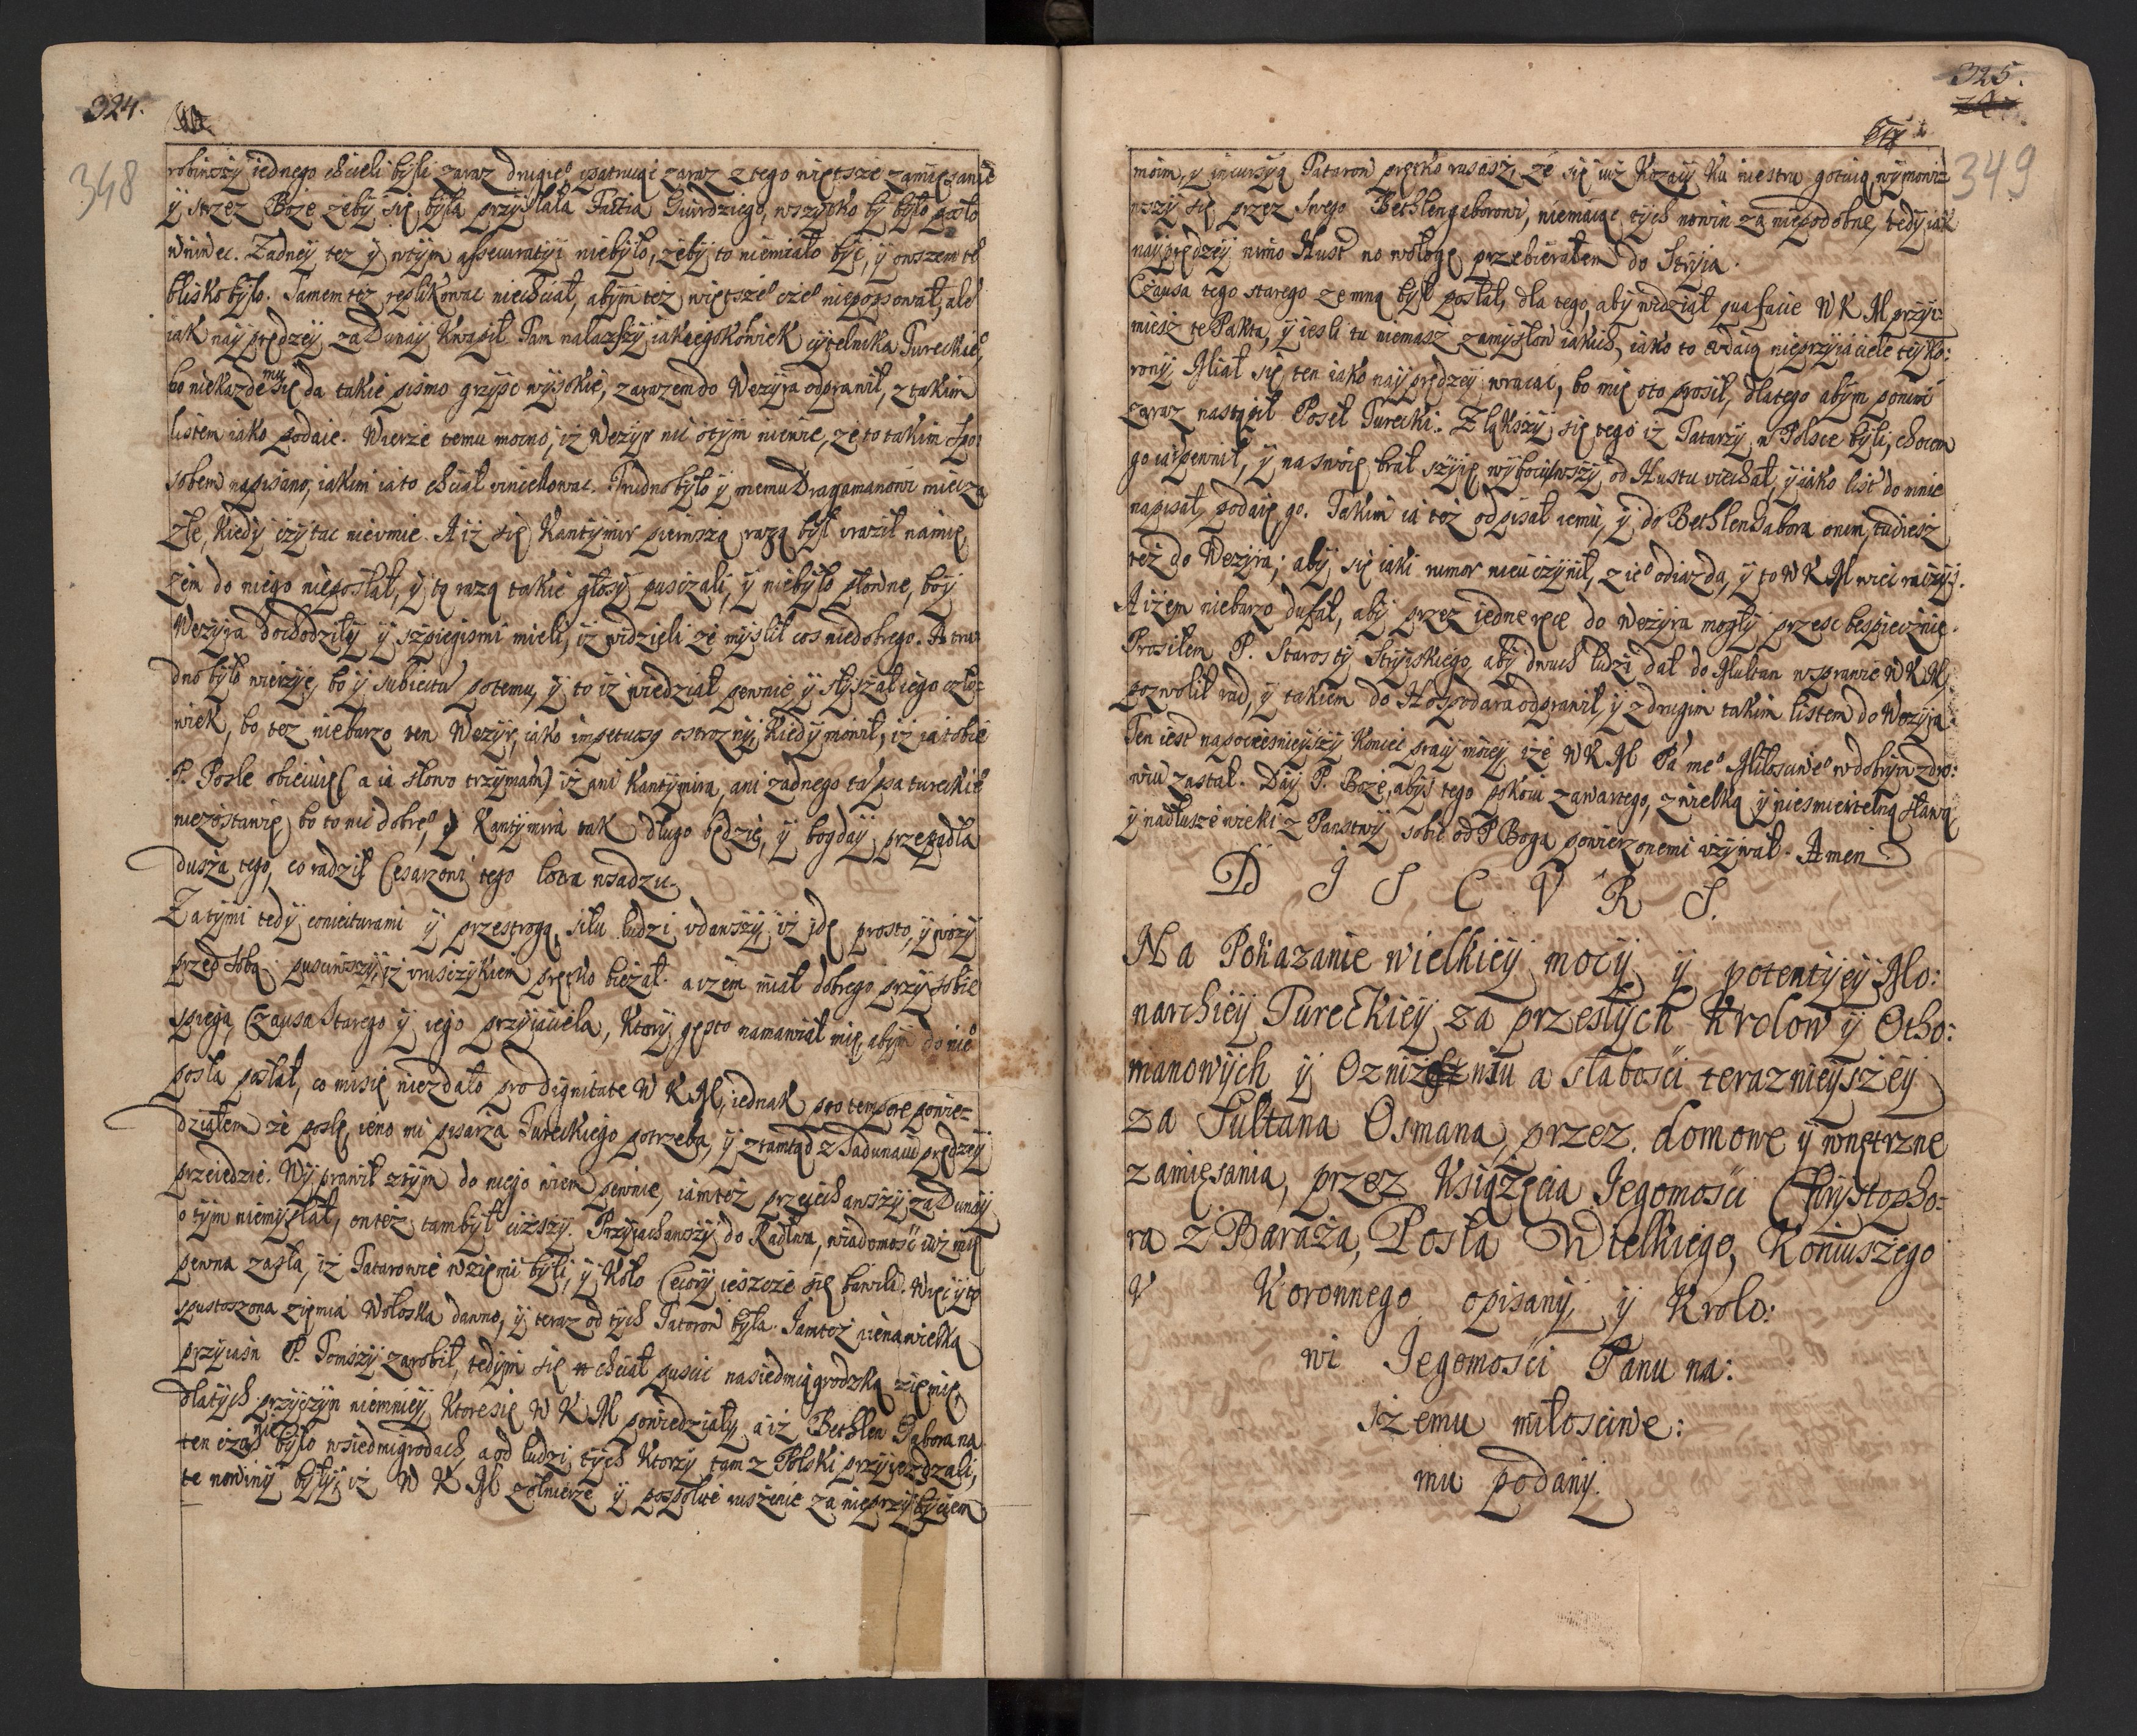 324.
348
robiwszy iednego chcieli byli zaraz drugieo upatruiąc zaraz z tego więtsze zamięsanie
y strzez Boże zeby się była przysłała Factia Giurdziego, wszytko by było poszło
wniwec. Zadney tez y wtym assecuratyi niebyło, zeby to niemiało być, y owszem te
blisko było. Jamem tez replikowac niechciał, abym tez więtszeo czeo niepopsował, ale
iak nayprędzey za Dunay kwapił Tam nalazszy iakiegokowiek czytelnika Tureckieo,
bo niekazdemu się da takie pismo gryść wysokie, zarazem do Wezyra odprawił, z takim
listem iako podaie. Wierzę temu mocno, iż Wezyr nic otym niewie, ze to takim spo:
sobem napisano, iakim ia to chciał vincitowac. Trudno było y memu Dragamanowi miecz
złe, kiedy czytac nieumie. A iż się Kantymir pierwszą razą był uraził na mię,
żem do niego nieposłał, y tą razą takie głosy pusczali, y niebyło płonne, bo y
Wezyra dochodziły y szpiegismi mieli, iż widzieli że myslił cos niedobrego. A tru:
dno było wierzyć, bo y subiecta potemu, y to iż wiedział pewnie y słyszał iego czło:
wiek, bo tez niebarzo ten Wezyr, iako impetuosq ostrożny, kiedy mowił, iż ia tobie
P. Posle obiecuię (a ia słowo trzymam) iż ani Kantymira, ani zadnego ta psa tureckie
niezostawię bo to nic dobreo, y Kantymira tak długo będzie, y bogday przepadła
dusza tego, co radził Cesarzowi tego łotra wsadzu.
Za tymi tedy coniciturami y przestrogą, siłu ludzi udawszy iż idę prosto, y wozy
przed sobą pusciwszy, iż vrusczykiem prętko bieżał. a iżem miał dobrego przy sobie
spiega, Czausa Starego y iego przyiaciela, ktory gęsto namawiał mię abym do nieo
posła posłał, co misię niezdało pro dignitate W K M, iednak pro tempore powie:
działem że poslę, ieno mi pisarza Tureckiego potrzeba, y ztamtąd z Zadunaiu prędzey
przeiedzie. Wyprawił ztym do niego wiem pewnie, iamtez przeiechawszy za Dunay
o tym niemyslał, on też tam był cizszy. Przyiachawszy do Radłwa, wiadomość iuż mię
pewna zaszła, iż Tatarowie wziemi byli, y koło Cecory ieszcze się bawili. Więc y to
spustoszona ziemia Wołoska dawno, y teraz od tych Tatarow była. Iamtez niena wielką
przyiaśń P. Tomszy zarobił, tedym się chciał puscić na siedmigrodzką ziemię
dla tych przyczyn niemniey, ktore się W K M powiedziały. a iż Bethlen Gabora na
ten czas nie było wsiedmigrodach, a od ludzi tych ktorzy tam z Polski przyieżdzali,
te nowiny były, iż W K M zołnierze y pospolite ruszenie za nieprzybyciem
325.
349
moim, y incursyą Tatarow prętko rusasz, że się iuż Kozacy ku niestru gotuią, wymowi
wszy się przez swego Bethlengaborowi, niemaiąc tych nowin za niepodobne, tedy iak
nayprędzey mimo Hust no wołogę przebierałem do Stryia.
Czausa tego starego zemną był posłał, dla tego, aby widział qua facie W K M przyi:
miesz te Pakta, y iesli tu niemasz zamysłow iakich, iako to udaią nieprzyiaciele tey ko:
rony. Miał się ten iako nayprędzey wracać, bo mię oto prosił, dlatego abym ponim
zaraz nastąpił Poseł Turecki. Zląkszy się tego iż Tatarzy w Polsce byli, chocem
go ia upewnił, y na swoię brał szyię wybociuwszy od Hustu uiechał, y iako list do mnie
napisał, podaię go. Takim ia też odpisał iemu, y do Bethlen Gabora onim, tudziesz
też do Wezyra; aby się iaki rumor nieuczynił, z ieo odiazda, y to W K M wieć raczysz.
A iżem niebarzo dufał, aby przez iedne ręce do Wezyra mogły przesc bespiecznie.
Prosiłem P. Starosty Stryiskiego, aby dwuch ludzi dał do Multan wsprawie W K M,
pozwolił rad, y takiem do Hospodara odprawił, y z drugim takim listem do Wezyra.
Ten iest napociesnieyszy koniec pracy moiey, iże W K M Pa meo Miłosciweo wdobrym zdro:
wiu zastał. Day P. Boże, abyś tego pokoiu zawartego, z wielką y niesmiertelną sławą
y nadłusze wieki z Panstwy sobie od P Boga powierzonemi używał. Amen
D I S C V R S.
Na Pokazanie wielkiey mocy y potentyey Mo:
narchiey Tureckiey za przesłych Krolow y Otho:
manowych y Ozniżeniu a słabosci teraznieyszey
za Sultana Osmana, przez domowe y wnętrzne
zamięsania, przez Książęcia Iegomości Chrystopho:
ra z Baraża, Posła Wielkiego, Koniuszego
V Koronnego opisany y Krolo:
wi Jegomości Panu na:
szemu miłosciwe:
mu podany.